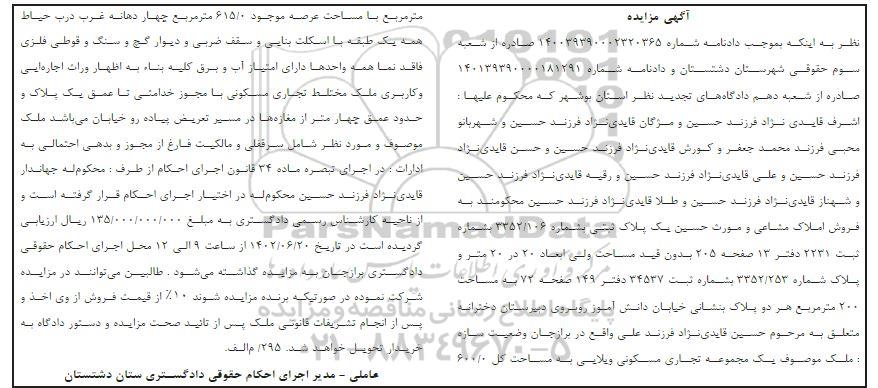 آگهی مزایده
نظر به اینکه بموجب دادنامه شماره ۱۴۰۰۳۹۳۹۰۰۰۲۳۲۰۳۶۵ صادره از شعبه
سوم حقوقی شهرستان دشتستان و دادنامه شماره ۱۴۰۱۳۹۳۹۰۰۰۰۱۸۱۲۹۱
صادره از شعبه دهم دادگاههای تجدید نظر استان بوشهر که محکوم علیها :
اشرف قایدی نژاد فرزند حسین و مژگان قایدی‌نژاد فرزند حسین و شهربانو
محبی فرزند محمد جعفر و کورش قایدی‌نژاد فرزند حسین و حسن قایدی‌نژاد
فرزند حسین و علی قایدی‌نژاد فرزند حسین و رقیه قایدی‌نژاد فرزند حسین
و شهناز قایدی‌نژاد فرزند حسین و طلا قایدی‌نژاد فرزند حسین محکومند به
فروش املاک مشاعی و مورث حسین یک پلاک ثبتی بشماره ۳۳۵۲/۱۰۶ بشماره
ثبت ۲۲۳۱ دفتر ۱۳ صفحه ۲۰۵ بدون قید مساحت ولی ابعاد ۲۰ در ۲۰ متر و
پلاک شماره ۳۳۵۲/۲۵۳ بشماره ثبت ۳۴۵۳۷ دفتر ۱۴۹ صفحه ۷۲ به مساحت
۲۰۰ مترمربع هر دو پلاک بنشانی خیابان دانش آموز روبروی دبیرستان دخترانه
متعلق به مرحوم حسین قایدی‌نژاد فرزند علی واقع در برازجان وضعیت سازه
: ملک موصوف یک مجموعه تجاری مسکونی ویلایی به مساحت کل ۶۰۰/۰
مترمربع با مساحت عرصه موجود ۶۱۵/۰ مترمربع چهار دهانه غرب درب حیاط
همه یک طبقه با اسکلت بنایی و سقف ضربی و دیوار گچ و سنگ و قوطی فلزی
فاقد نما همه واحدها دارای امتیاز آب و برق کلیه بناء به اظهار وراث اجاره‌ایی
وکاربری ملک مختلط تجاری مسکونی با مجوز خدامتی تا عمق یک پلاک و
حدود عمق چهار متر از مغازه‌ها در مسیر تعریض پیاده رو خیابان می‌باشد ملک
موصوف و مورد نظر شامل سرقفلی و مالکیت فارغ از مجوز و بدهی احتمالی به
ادارات : در اجرای تبصره ماده ۳۴ قانون اجرای احکام از طرف : محکوم‌له جهاندار
قایدی‌نژاد فرزند حسین محکوم‌له در اختیار اجرای احکام قرار گرفته است و
از ناحیه کارشناس رسمی دادگستری به مبلغ ۱۳۵/۰۰۰/۰۰۰/۰۰۰ ریال ارزیابی
گردیده است در تاریخ ۱۴۰۲/۰۶/۲۰ از ساعت ۹ الی ۱۲ محل اجرای احکام حقوقی
دادگستری برازجان به مزایده گذاشته می‌شود . طالبین می‌توانند در مزایده
شرکت نموده در صورتیکه برنده مزایده شوند ۱۰٪ از قیمت فروش از وی اخذ و
پس از انجام تشریفات قانونی ملک پس از تائید صحت مزایده و دستور دادگاه به
خریدار تحویل خواهد شد. ۲۹۵/ م‌الف.
عاملی - مدیر اجرای احکام حقوقی دادگستری ستان دشتستان
ParsNamadData
۰۲۱-۸۸۳۴۹۶۷۰-۵